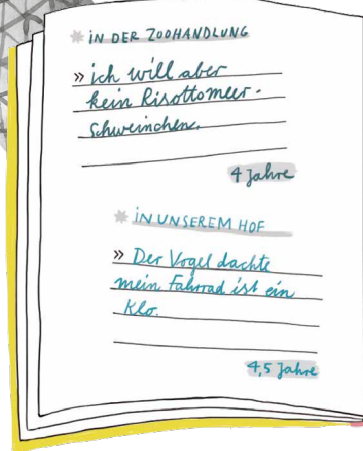 * IN DER ZOOHANDLUNG
» ich will aber
kein Risottomeer-
schweinchen.
4 Jahre
* IN UNSEREM HOF
» Der Vogel dachte
mein Fahrrad ist ein
Klo.
4,5 Jahre